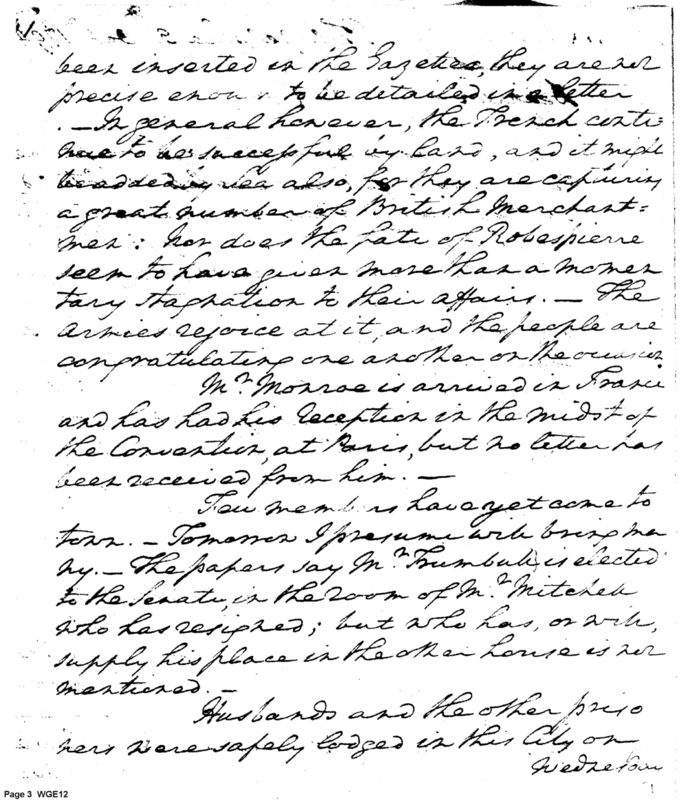 been inserted in the Gazettes, they are not
precise enou to be detailed in a letter
.—In general however, the French conti-
nue to be successful by land, and it might
be added by Sea also, for they are capturing
a great number of British Merchant=
men: Nor does the fate of Robespierre
seem to have given more than a momen
tary stagnation to their affairs. — The
Armies rejoice at it, and the people are
congratulating one another on the occasion
Mr. Monroe is arrived in France
and has had his reception in the midst of
the Convention, at Paris, but no letter has
been received from him. —
Few members have yet come to
town. — Tomorrow I presume will bring ma
ny. — The papers say Mr. Trumbull is elected
to the Senate, in the room of Mr. Mitchell
who has resigned; but who has, or will,
supply his place in the other house is not
mentioned. —
Husbands and the other priso
ners were safely lodged in this City on
Wednesday
Page 3 WGE12